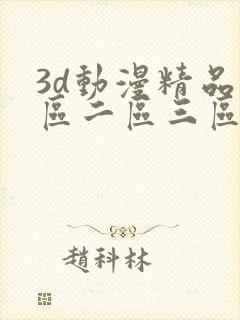 3d動漫精品
區二區三區
趙科林